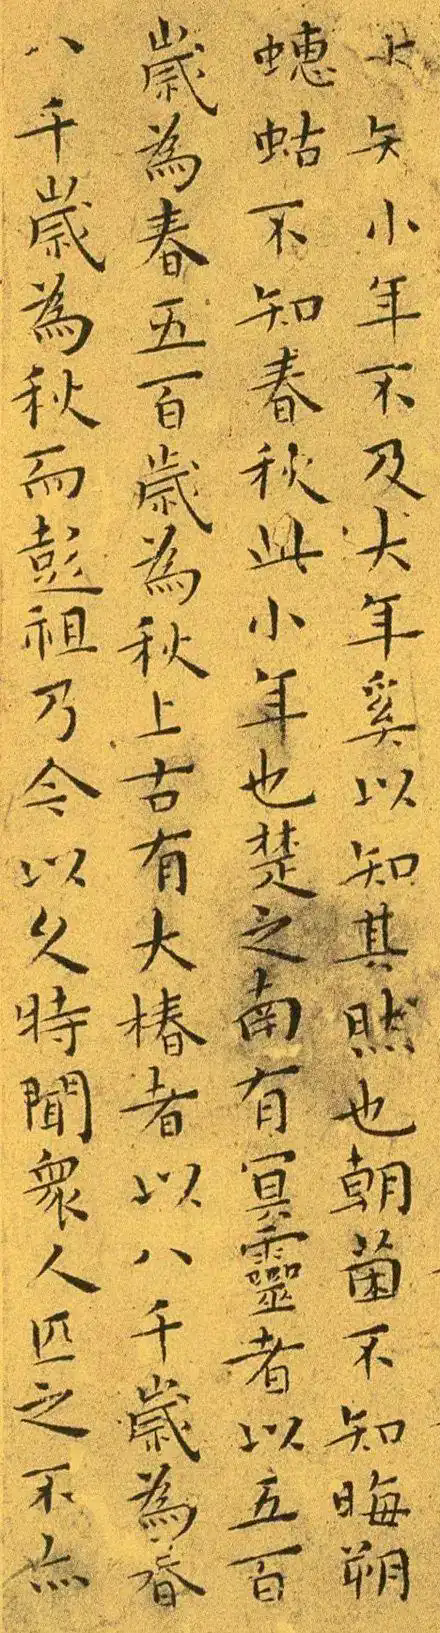 小年不及大年奚以知其然也朝菌不知晦朔
蟪蛄不知春秋此小年也楚之南有冥靈者以五百
歲為春五百歲為秋上古有大椿者以八千歲為春
八千歲為秋而彭祖乃今以久特聞衆人匹之不亦